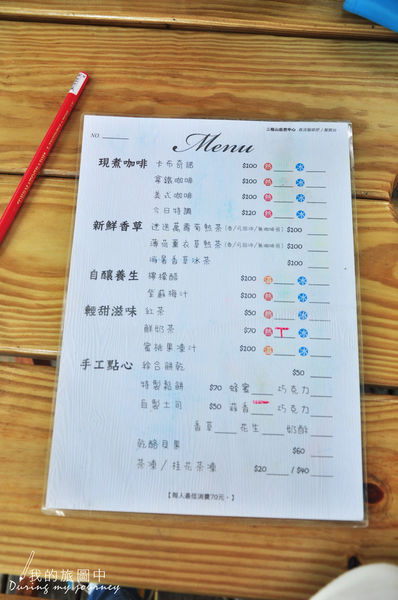 NO.
Menu
現煮咖啡 卡布奇諾 $100 熱 冰
拿鐵咖啡 $100 熱 冰
美式咖啡 $100 熱 冰
今日特調 $120 熱 冰
新鮮香草 迷迭萬壽菊熱茶 $100
薄荷薰衣草熱茶 $100
消暑香草冰茶 $100
自釀養生 檸檬醋 $100 溫 冰
紫蘇梅汁 $100 熱 冰
輕甜滋味 紅茶 $50 熱 冰
鮮奶茶 $70 熱 冰
蜜桃果凍汁 $100 溫 冰
手工點心 綜合餅乾 $50
特製鬆餅 $70 蜂蜜 巧克力
自製土司 $50 蒜香 巧克力
香草 花生 奶酥
乾酪貝果 $60
茶凍/桂花茶凍 $20 / $40
【每人最低消費70元。】
我的旅圖中
During my journey